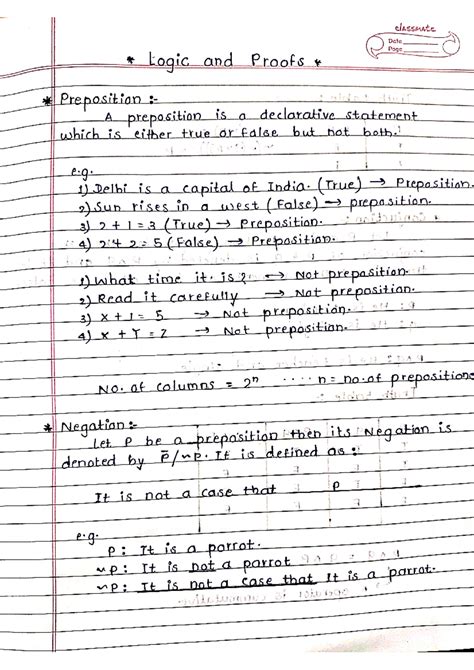 classmate
Date
Page
* Logic and Proofs *
* Preposition :-
A preposition is a declarative statement
which is either true or false but not both.
e.g.
1) Delhi is a capital of India. (True) → Preposition.
2) Sun rises in a west (False) → preposition.
3) 2 + 1 = 3 (True) → Preposition.
4) 2 + 2 = 5 (False) → Preposition.
1) What time it is? → Not preposition.
2) Read it carefully → Not preposition.
3) x + 1 = 5 → Not preposition.
4) x + Y = Z → Not preposition.
No. of columns = 2ⁿ ..... n = no. of prepositions
* Negation :-
Let P be a preposition then its Negation is
denoted by p̅/~p. It is defined as :
It is not a case that p
e.g.
p : It is a parrot.
~p : It is not a parrot.
~p : It is not a case that It is a parrot.